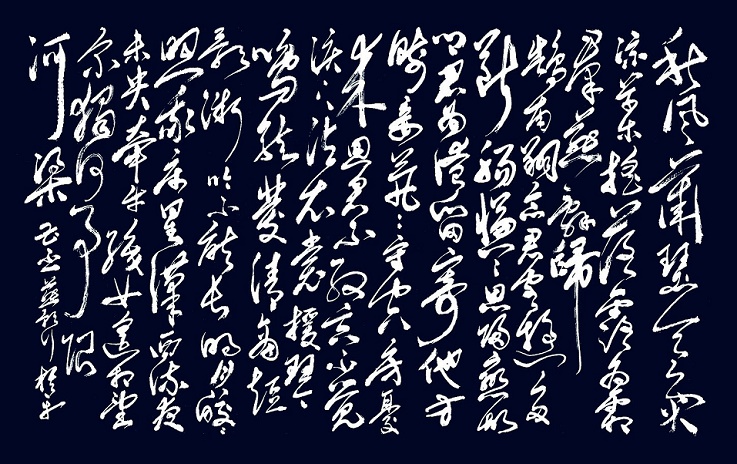 秋風蕭瑟天氣
涼草木搖落露為霜
群燕辭歸
鵠南翔念君客遊多
斷腸慊慊思歸戀故
鄉君為淹留寄他方
賤妾煢煢守空房憂
來思君不敢忘不覺
淚下沾衣裳援琴
鳴絃發清商短
歌微吟不能長明月皎皎
照我床星漢西流夜
未央牽牛織女遙相望
爾獨何辜限
河梁
曹丕燕歌行